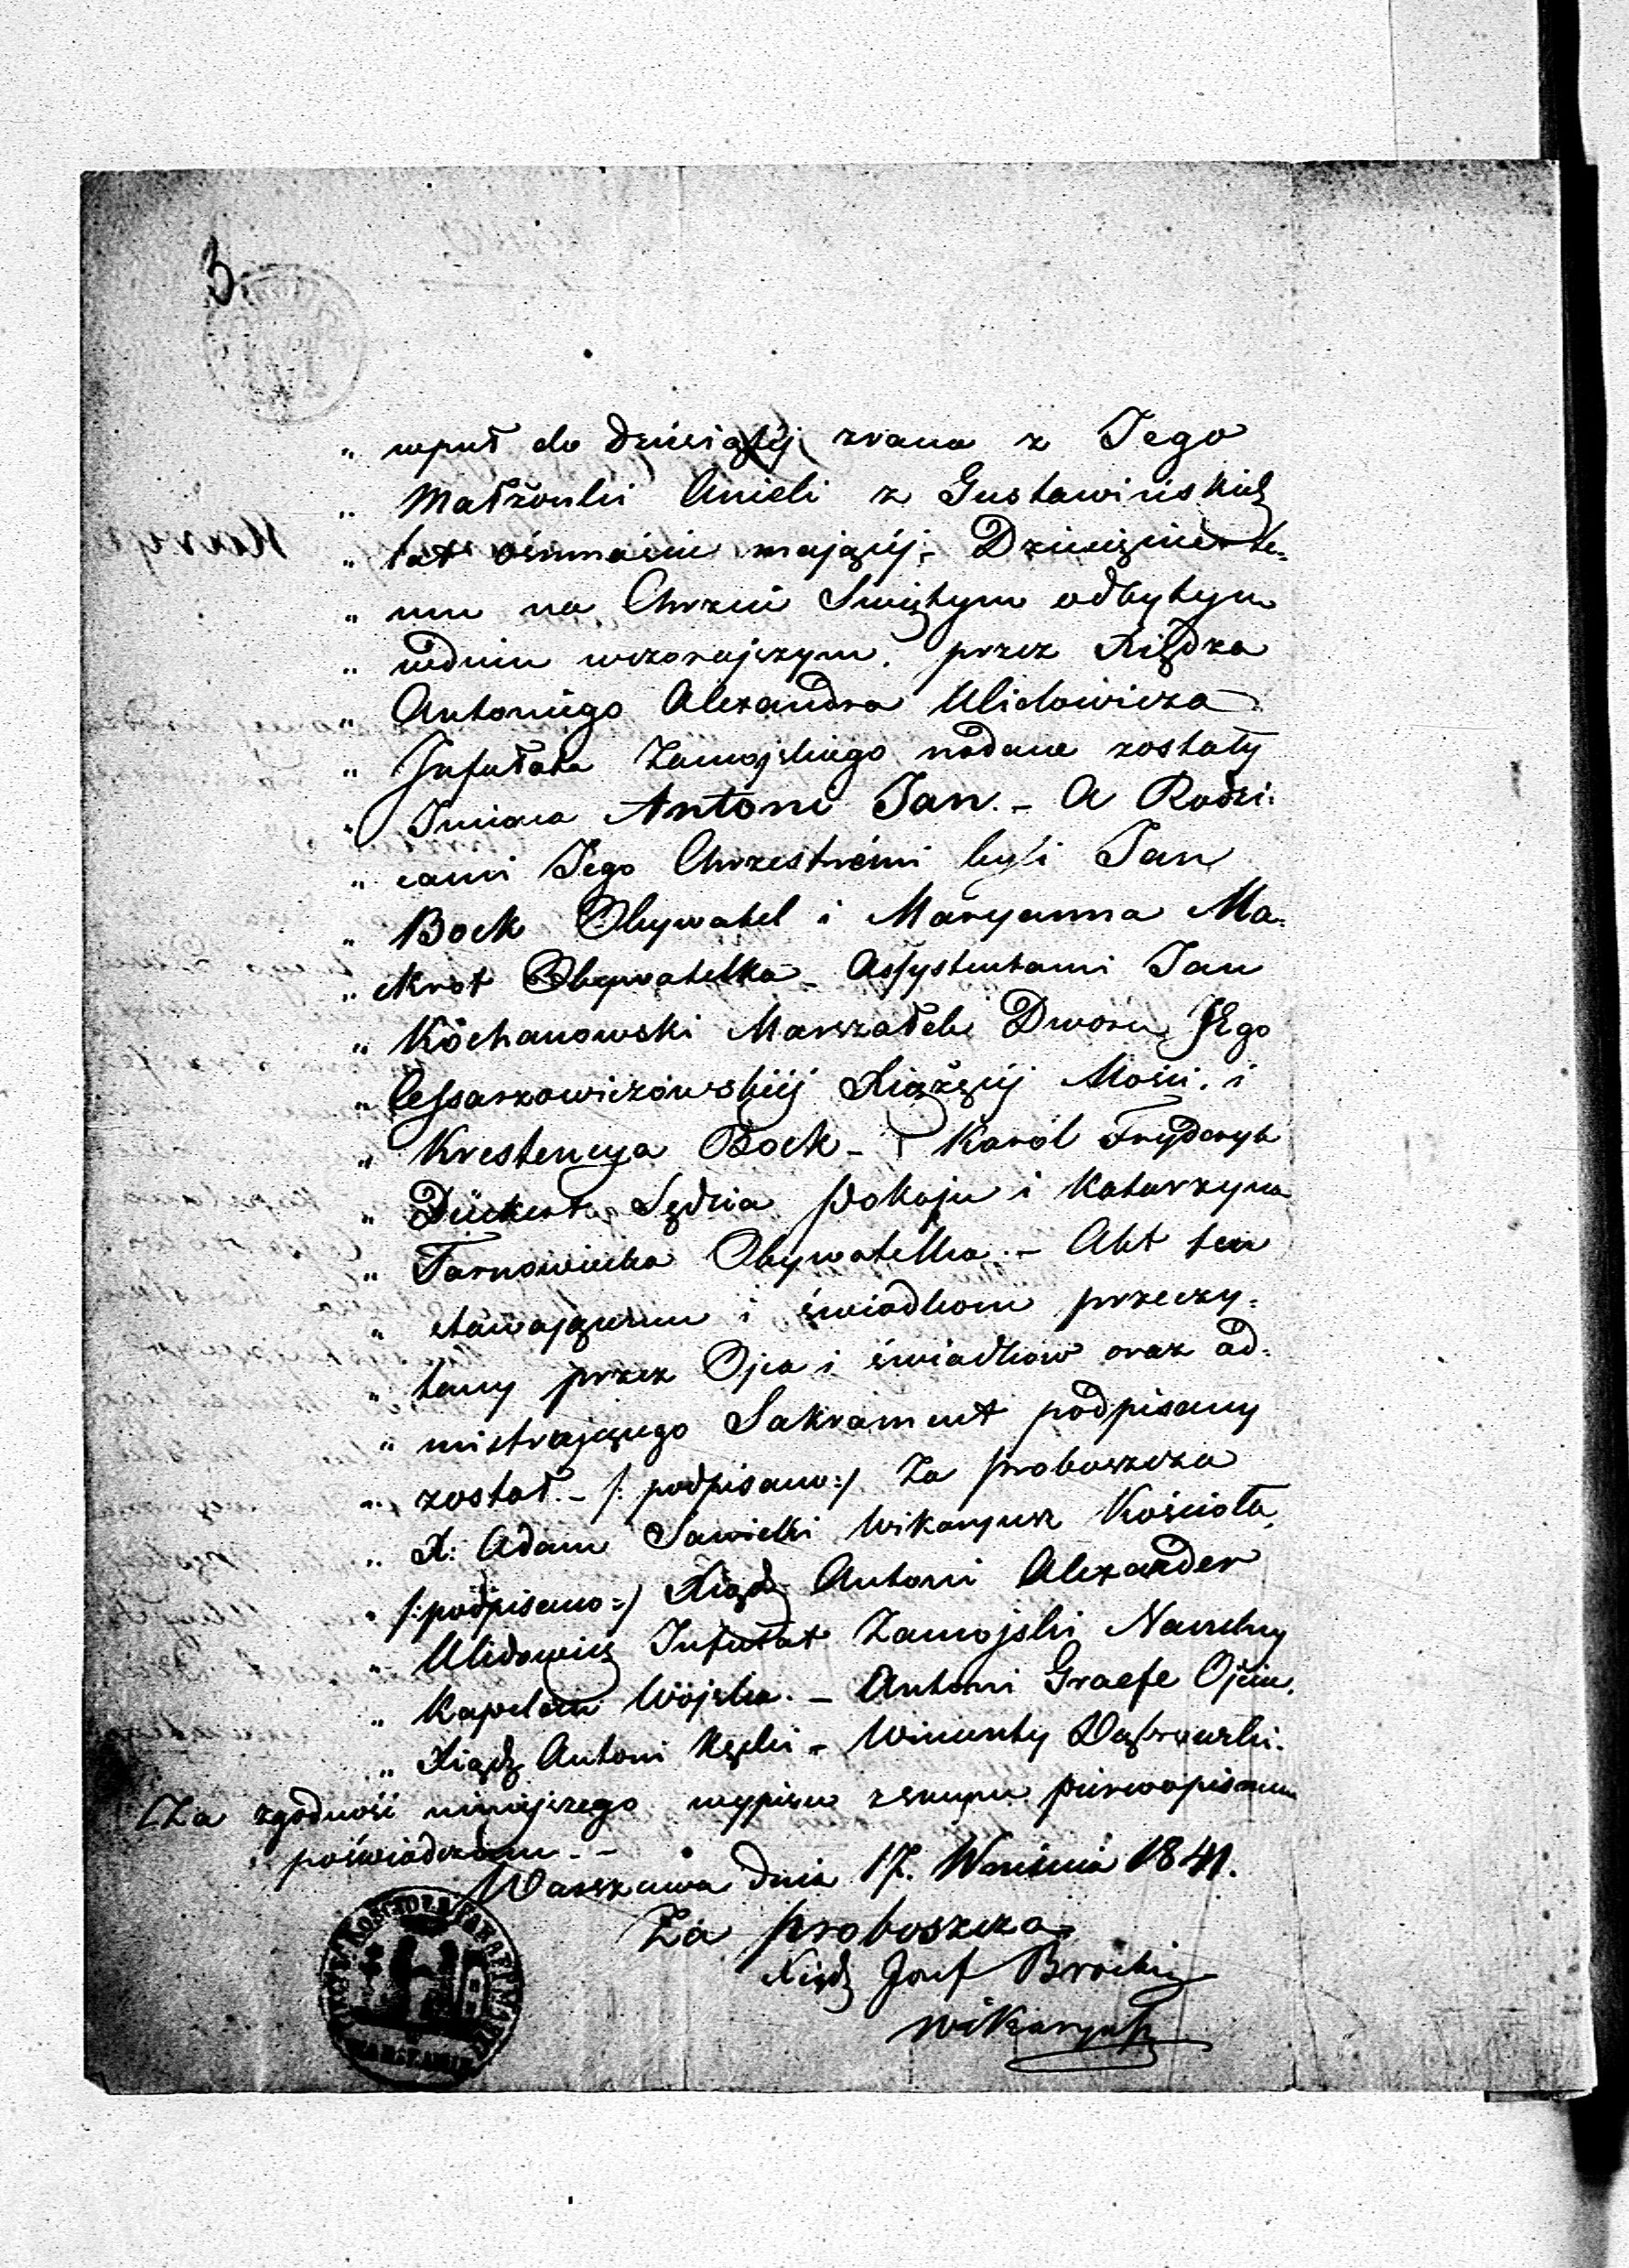 3.
„ wpuł do dziesiątéj zrana z Jego
„ Małżonki Anieli z Gustawińskich
„ lat ośmnaście mającéj. Dziecięciu te-
„ mu na Chrzcie Swiętym odbytym
„ wdniu wczorajszym, przez Xiędza
„ Antoniego Alexandra
„ Infułata Zamojskiego nadane zostały
„ Imiona Antoni Jan. – A Rodzi-
„ cami Jego Chrzestnémi byli Jan
„ Bock Obywatel i Maryanna Ma-
„ Obywatelka – Assystentami Jan
„ Kochanowski Marszałek Dworu JEgo
„ Cessarzowiczowskiéj Xiążęcéj Mości, i
„ Krestencya Bock – i Karól Fryderyk
„ Sędzia Pokoju i Katarzyna
„ Tarnowiecka Obywatelka. – Akt ten
„ stawającemu i świadkom przeczy-
„ tany przez Ojca i świadków oraz ad-
„ mistrującego Sakrament podpisany
„ został. – /: podpisano :/ Za proboszcza
„ X: Adam Sawicki Wikaryusz Kościoła,
„ /: podpisano :/ Xiądz Antoni Alexander
„ Infułat Zamojski Naczelny
„ Kapelan Wojska. – Antoni Graefe Ojciec,
„ Xiądz Antoni – Wincenty Dąbrowski.
Za zgodność niniejszego wypisu z swym pierwopisem
poświadczam. –
Warszawa dnia 17. Września 1841.
Za proboszcza
Xiądz Józef
Wikaryusz